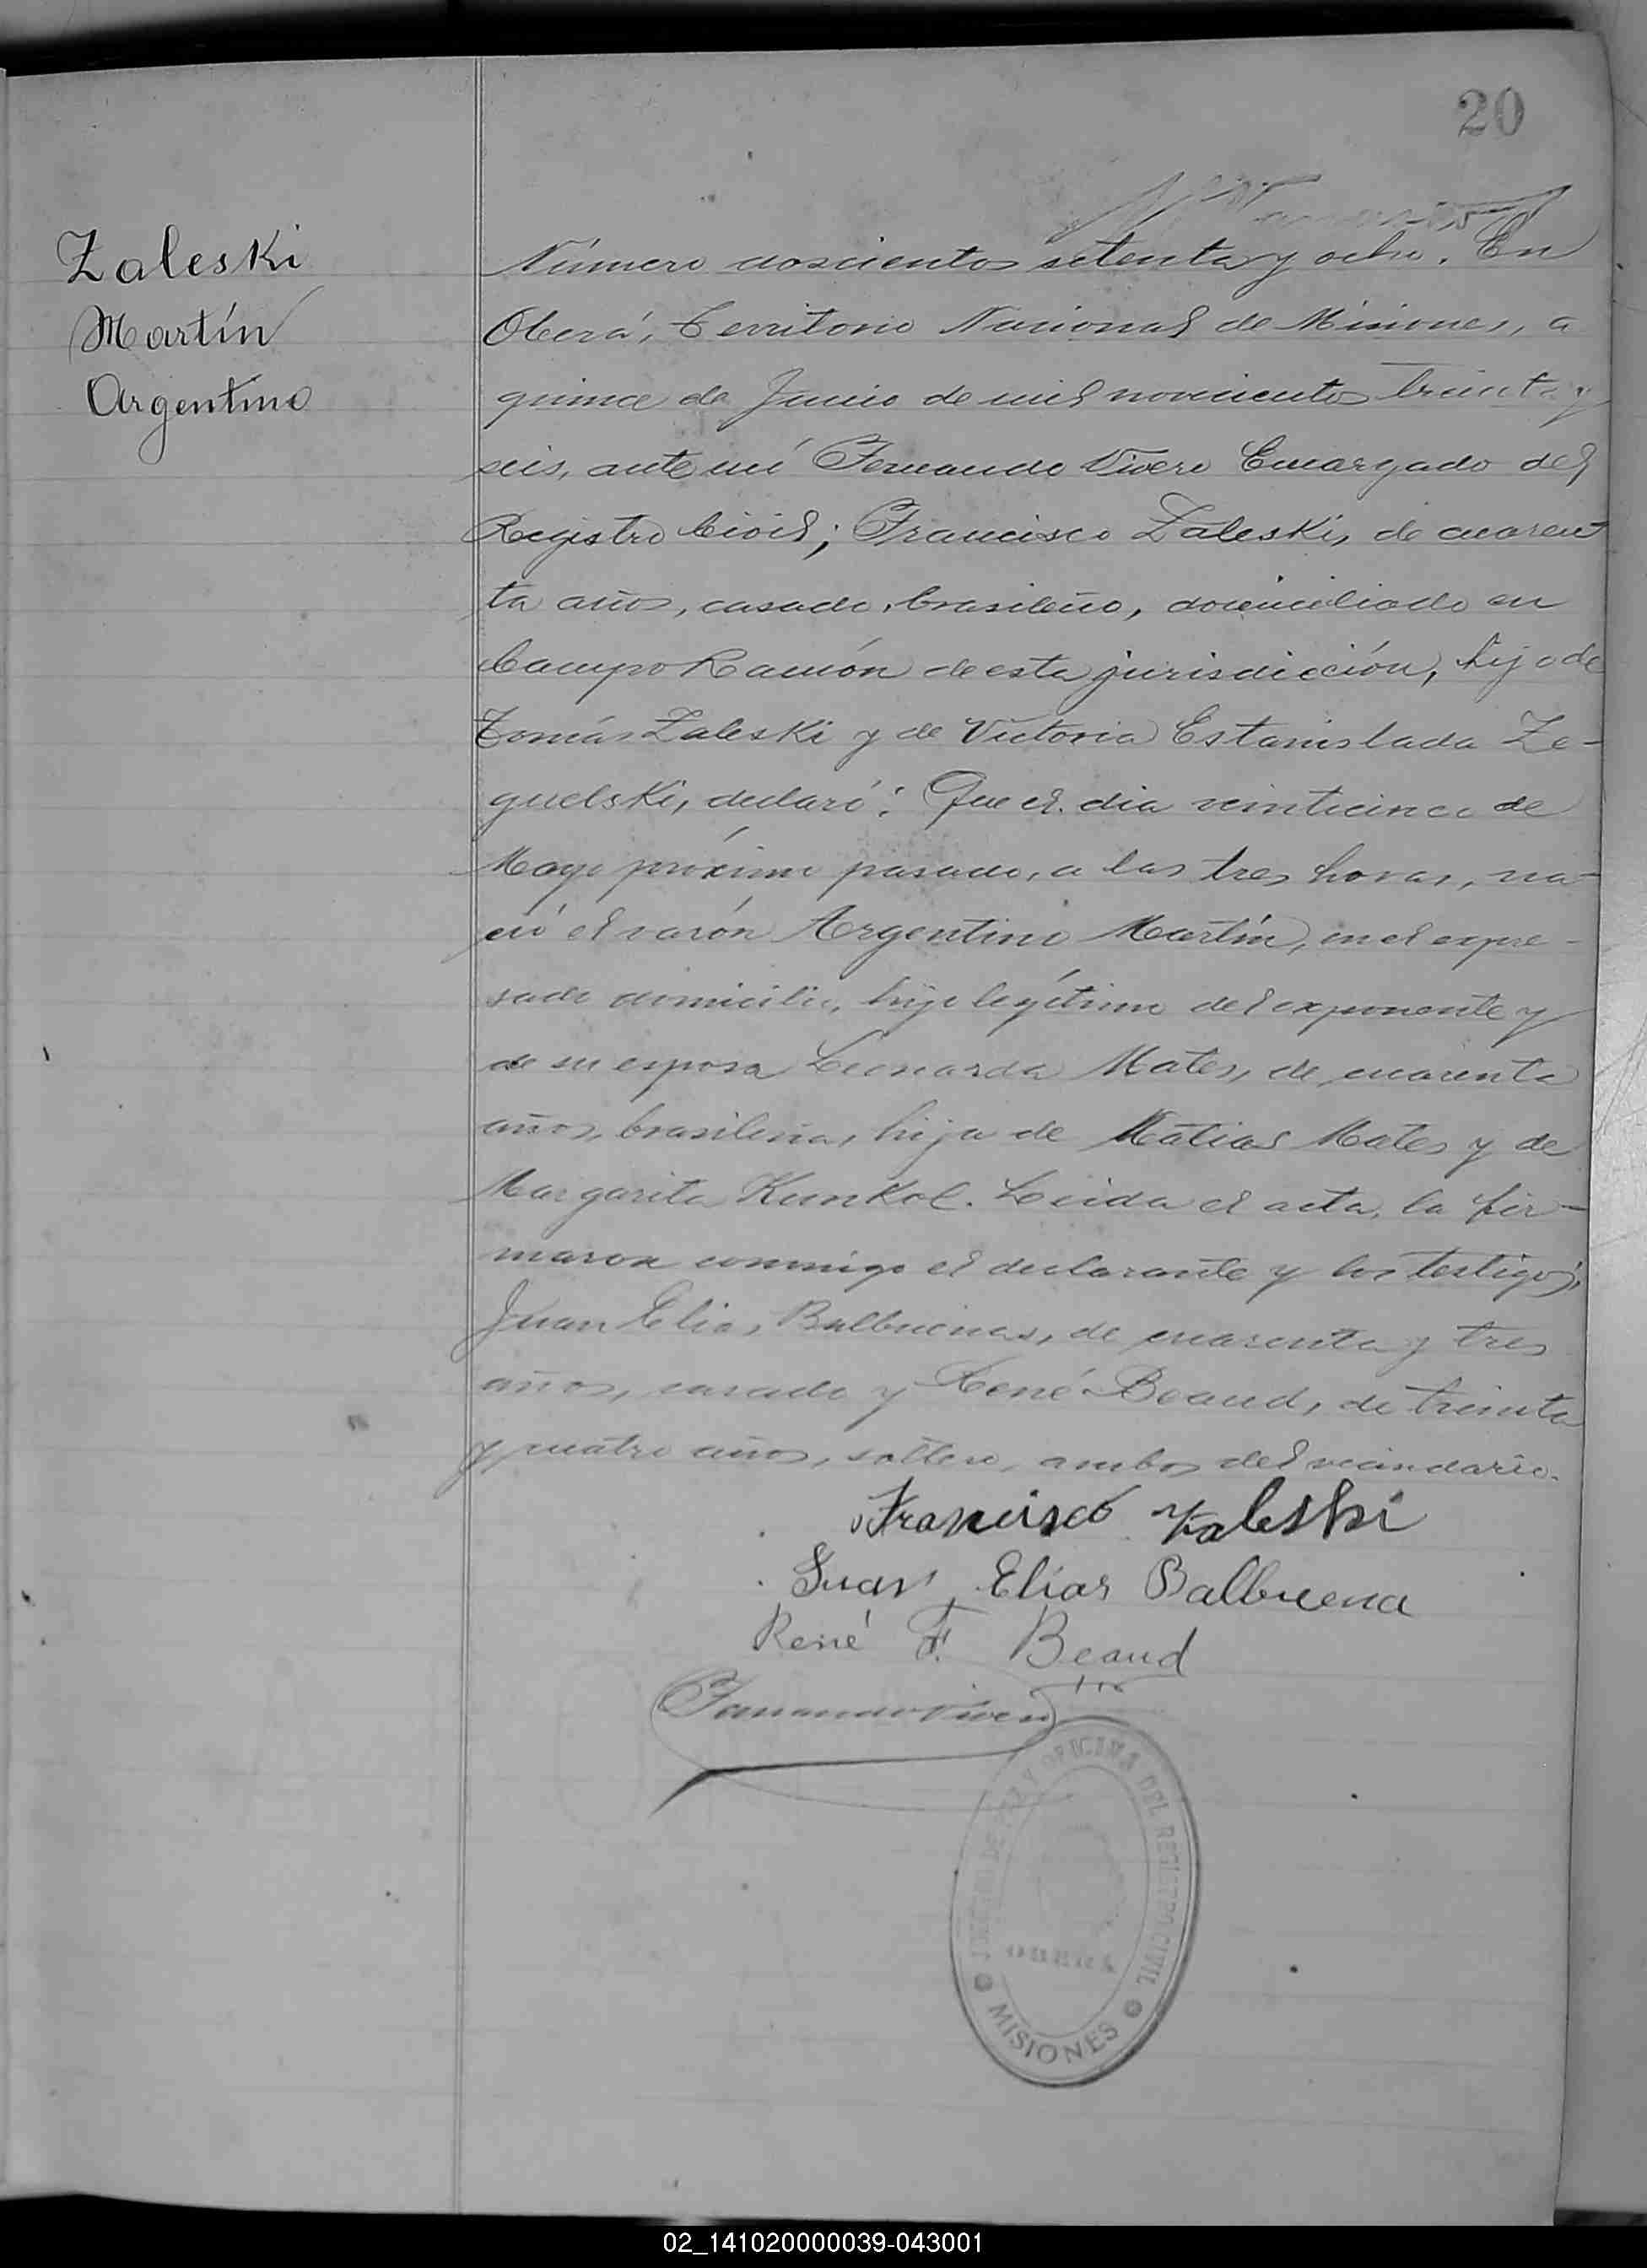 20
Zaleski
Martín
Argentino
Número doscientos setenta y ocho. En
Oberá, Territorio Nacional de Misiones, a
quince de Junio de mil novecientos treinta y
seis, ante mí Fernando Vivero Encargado del
Registro Civil; Francisco Zaleski, de cuaren
ta años, casado, brasileño, domiciliado en
Campo Ramón de esta jurisdicción, hijo de
Tomás Zaleski y de Victoria Estanislada Ze-
guelski, declaró: Que el día veinticinco de
Mayo próximo pasado, a las tres horas, na-
ció el varón Argentino Martín, en el expre-
sado domicilio, hijo legítimo del exponente y
de su esposa Leonarda Mates, de cuarenta
años, brasileña, hija de Matias Mates y de
Margarita Kunkol. Leida el acta, la fir-
maron conmigo el declarante y los testigos;
Juan Elias Balbuenas, de cuarenta y tres
años, casado y René Beaud, de treinta
y cuatro años, soltero, ambos del vecindario.
Francisco Zaleski
Juan Elías Balbuena
René F. Beaud
Fernando Vivero
OFICINA DEL REGISTRO CIVIL
MISIONES
02_141020000039-043001